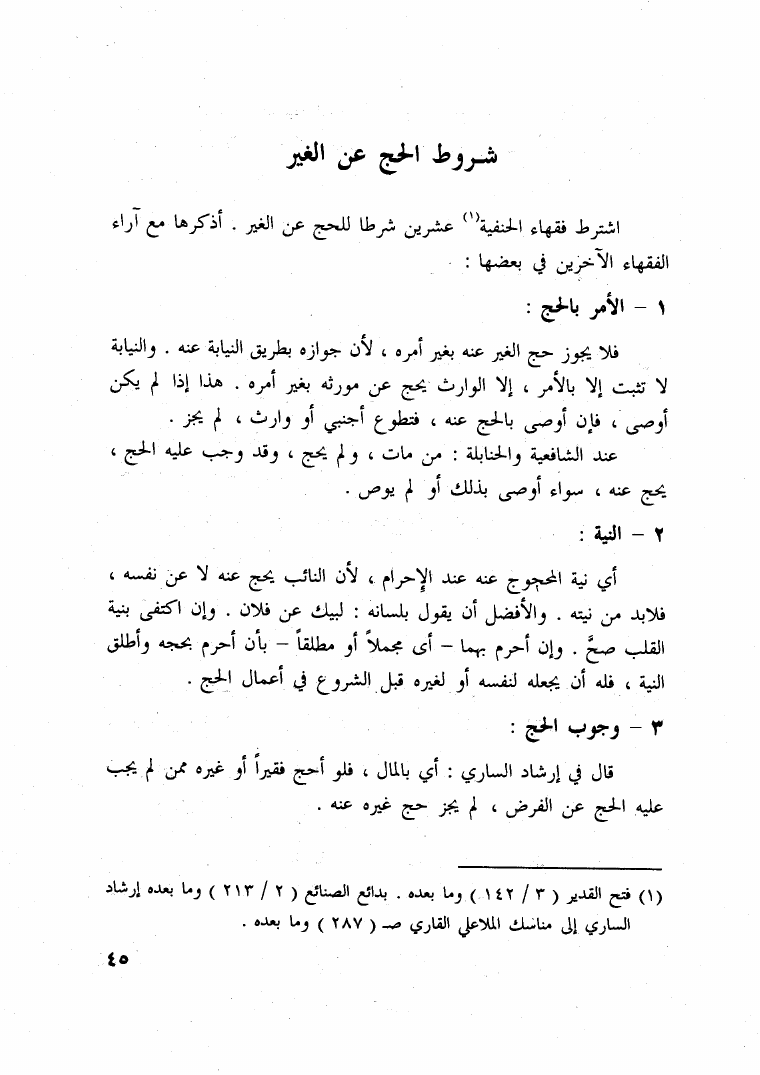 شروط الحج عن الغير
اشترط فقهاء الحنفية(١) عشرين شرطا للحج عن الغير . أذكرها مع آراء
الفقهاء الآخرين في بعضها :
١ – الأمر بالحج :
فلا يجوز حج الغير عنه بغير أمره ، لأن جوازه بطريق النيابة عنه . والنيابة
لا تثبت إلا بالأمر ، إلا الوارث يحج عن مورثه بغير أمره . هذا إذا لم يكن
أوصى ، فإن أوصى بالحج عنه ، فتطوع أجنبي أو وارث ، لم يجز .
عند الشافعية والحنابلة : من مات ، ولم يحج ، وقد وجب عليه الحج ،
يحج عنه ، سواء أوصى بذلك أو لم يوص .
٢ – النية :
أي نية المحجوج عنه عند الإحرام ، لأن النائب يحج عنه لا عن نفسه ،
فلابد من نيته . والأفضل أن يقول بلسانه : لبيك عن فلان . وإن اكتفى بنية
القلب صحَّ . وإن أحرم بهما – أى مجملاً أو مطلقاً – بأن أحرم بحجه وأطلق
النية ، فله أن يجعله لنفسه أو لغيره قبل الشروع في أعمال الحج .
٣ – وجوب الحج :
قال في إرشاد الساري : أي بالمال ، فلو أحج فقيراً أو غيره ممن لم يجب
عليه الحج عن الفرض ، لم يجز حج غيره عنه .
(١) فتح القدير ( ٣ / ١٤٢ ) وما بعده . بدائع الصنائع ( ٢ / ٢١٣ ) وما بعده إرشاد
الساري إلى مناسك الملاعلي القاري صـ ( ٢٨٧ ) وما بعده .
٤٥